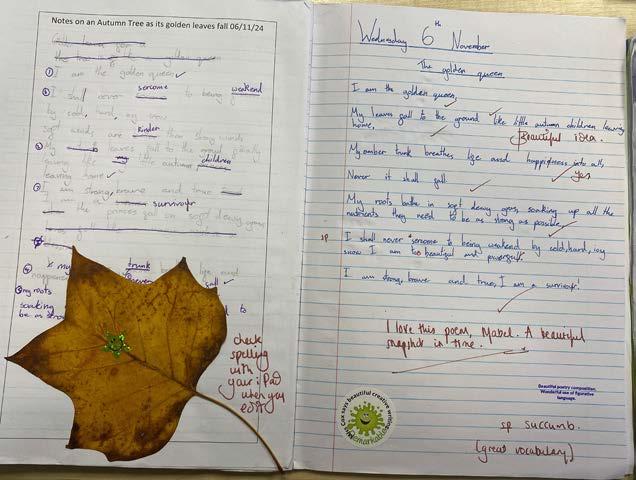 Notes on an Autumn Tree as its golden leaves fall 06/11/24
① I am the golden queen
sercome weakend
② I shall never to being
by cold, hard, icy snow
kinder
Soft words are than strong words
leaves fall to the
like little autumn children
leaving home
I am strong, brave and true
I am a survivour
the princess fall on soft dewy grass
my trunk life and
happiness never fall
my roots
soaking to
be as strong
check
spelling
with
your iPad
when you
edit
Wednesday 6th November
The golden queen
I am the golden queen,
My leaves fall to the ground like little autumn children leaving
home,
Beautiful idea.
My amber trunk breathes life and happiness into all,
yes
Never it shall fall.
My roots bathe in soft dewy grass, soaking up all the
nutrients they need to be as strong as possible,
sp I shall never sercome to being weakend by cold, hard, icy
snow I am too beautiful and powerful.
I am strong, brave and true, I am a survivour!
I love this poem, Mabel. A beautiful
snapshot in time.
Beautiful poetry composition.
Wonderful use of figurative
language.
Miss Cox says beautiful creative writing
Remarkable
sp succumb.
(great vocabulary)